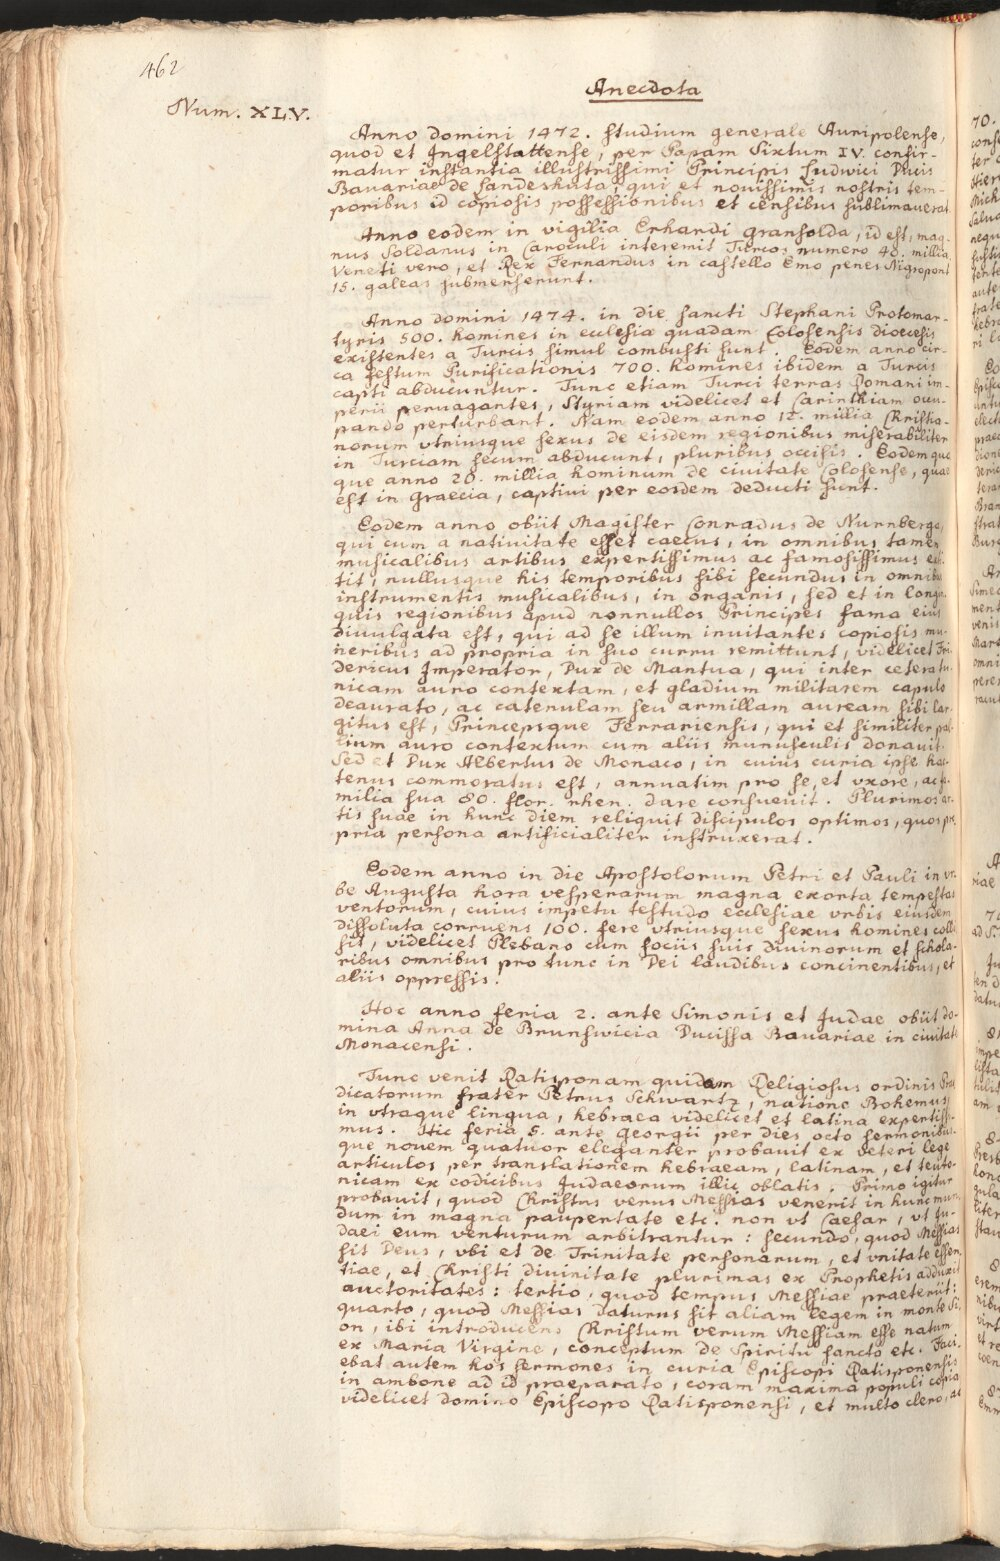 462
Anecdota
Num. XLV.
Anno domini 1472. studium generale Auripolense,
quod et Ingelstattense, per Papam Sixtum IV. confir-
matur instantia illustrissimi Principis Ludwici Ducis
Bavariae de Landeshuta, qui et novissimis nostris tem-
poribus id copiosis possessionibus et censibus sublimaverat
Anno eodem in vigilia Erhardi Gransolda, id est, mag-
nus Soldanus in Caroculi interemit Turcos numero 40. millia,
Veneti vero, et Rex Fernandus in castello Emo penes Nigropont
15. galeas submerserunt.
Anno domini 1474. in die sancti Stephani Protomar-
tyris 500. homines in ecclesia quadam Colosensis dioecesis
existentes a Turcis simul combusti sunt. Eodem anno cir-
ca festum Purificationis 700. homines ibidem a Turcis
capti abducuntur. Tunc etiam Turci terras Romani im-
perii pervagantes, Styriam videlicet et Carinthiam occu-
pando perturbant. Nam eodem anno 12. millia Christia-
norum vtriusque sexus de eisdem regionibus miserabiliter
in Turciam secum abducunt, pluribus occisis. Eodemque
que anno 20. millia hominum de civitate Colosense, quae
est in Graecia, captivi per eosdem deducti sunt.
Eodem anno obiit Magister Conradus de Nurnberga,
qui cum a nativitate esset caecus, in omnibus tamen
musicalibus artibus expertissimus ac famosissimus exti-
tit, nullusque his temporibus sibi secundus in omnibus
instrumentis musicalibus, in organis, sed et in longin-
quis regionibus apud nonnullos Principes fama eius
divulgata est, qui ad se illum invitantes copiosis mu-
neribus ad propria in suo curru remittunt, videlicet Fri-
dericus Imperator, Dux de Mantua, qui inter cetera tu-
nicam auro contextam, et gladium militarem capulo
deaurato, ac catenulam seu armillam auream sibi lar-
gitus est, Princepsque Ferrariensis, qui et similiter pal-
lium auro contextum cum aliis munusculis donavit.
Sed et Dux Albertus de Monaco, in cuius curia ipse hac-
tenus commoratus est, annuatim pro se, et vxore, ac fa-
milia sua 80. flor. rhen. dare consuevit. Plurimos ar-
tis suae in hunc diem reliquit discipulos optimos, quos pro-
pria persona artificialiter instruxerat.
Eodem anno in die Apostolorum Petri et Pauli in vr-
be Augusta hora vesperarum magna exorta tempestas
ventorum, cuius impetu testudo ecclesiae vrbis eiusdem
dissoluta corruens 100. fere vtriusque sexus homines colli-
sit, videlicet Plebano cum sociis suis divinorum et schola-
ribus omnibus pro tunc in Dei laudibus concinentibus, et
aliis oppressis.
Hoc anno feria 2. ante Simonis et Judae obiit do-
mina Anna de Brunswicia Ducissa Bavariae in civitate
Monacensi.
Tunc venit Ratisponam quidam Religiosus ordinis Prae-
dicatorum frater Petrus Schwartz, natione Bohemus,
in vtraque lingua, hebraea videlicet et latina expertissi-
mus. Hic feria 5. ante Georgii per dies octo sermonibus-
que novem quatuor eleganter probavit ex veteri lege
articulos per translationem hebraeam, latinam, et teuto-
nicam ex codicibus Judaeorum illic oblatis. Primo igitur
probavit, quod Christus verus Messias venerit in hunc mun-
dum in magna paupertate etc. non vt Caesar, vt Ju-
daei eum venturum arbitrantur: secundo, quod Messias
sit Deus, vbi et de Trinitate personarum, et vnitate essen-
tiae, et Christi divinitate plurimas ex Prophetis adduxit
auctoritates: tertio, quod tempus Messiae praeteriit:
quarto, quod Messias daturus sit aliam legem in monte Si-
on, ibi introducens Christum verum Messiam esse natum
ex Maria Virgine, conceptum de Spiritu sancto etc. Faci-
ebat autem hos sermones in curia Episcopi Ratisponensis
in ambone ad id praeparato, coram maxima populi copia
videlicet domino Episcopo Ratisponensi, et multo clero, ac